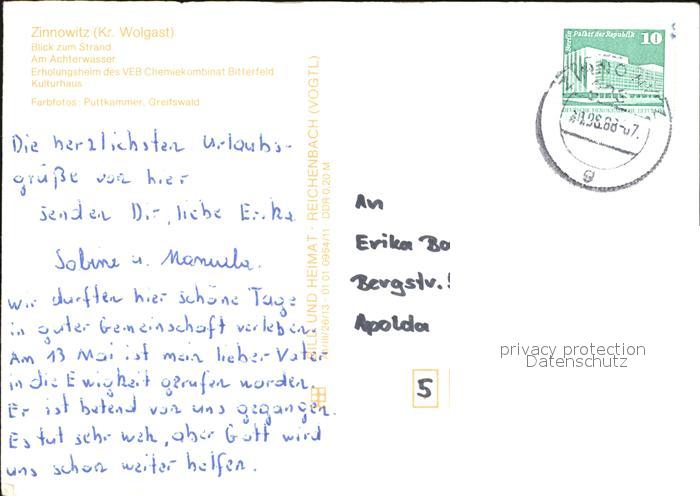 Zinnowitz (Kr. Wolgast)
Blick zum Strand
Am Achterwasser
Erholungsheim des VEB Chemiekombinat Bitterfeld
Kulturhaus
Farbfotos: Puttkammer, Greifswald
Die herzlichsten Urlaubs-
grüße von hier
senden Dir, liebe Erika
Sabine u. Manuela.
Wir durften hier schöne Tage
in guter Gemeinschaft verleben.
Am 13 Mai ist mein lieber Vater
in die Ewigkeit gerufen worden.
Er ist betend von uns gegangen.
Es tut sehr weh, aber Gott wird
uns schon weiter helfen.
BILD UND HEIMAT · REICHENBACH (VOGTL)
01 01 0954/11 DDR 0,20 M
Berlin Palast der Republik
10
DEUTSCHE DEMOKRATISCHE REPUBLIK
An
Erika Bo
Bergstr.
Apolda
5
privacy protection
Datenschutz